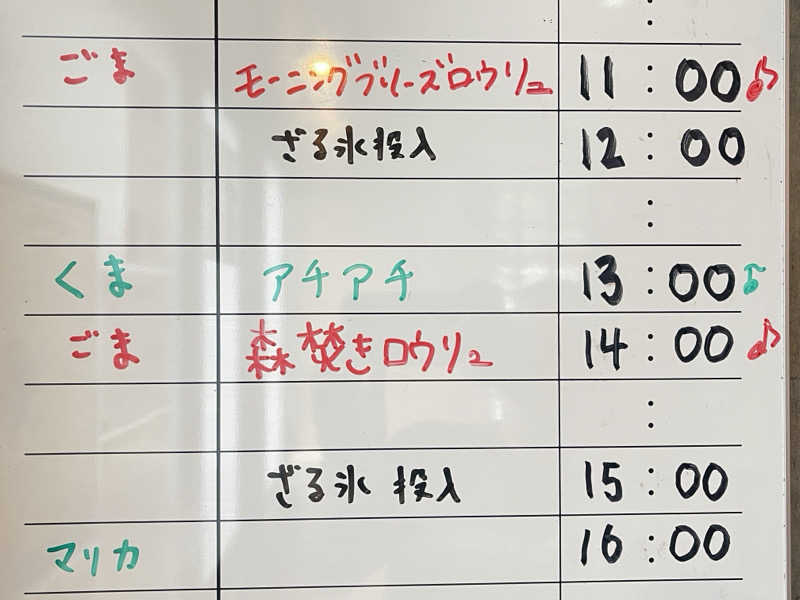 :
ごま モーニングブリーズロウリュ 11:00♪
ざる氷投入 12:00
:
くま アチアチ 13:00♪
ごま 森焚きロウリュ 14:00♪
:
ざる氷投入 15:00
マリカ 16:00